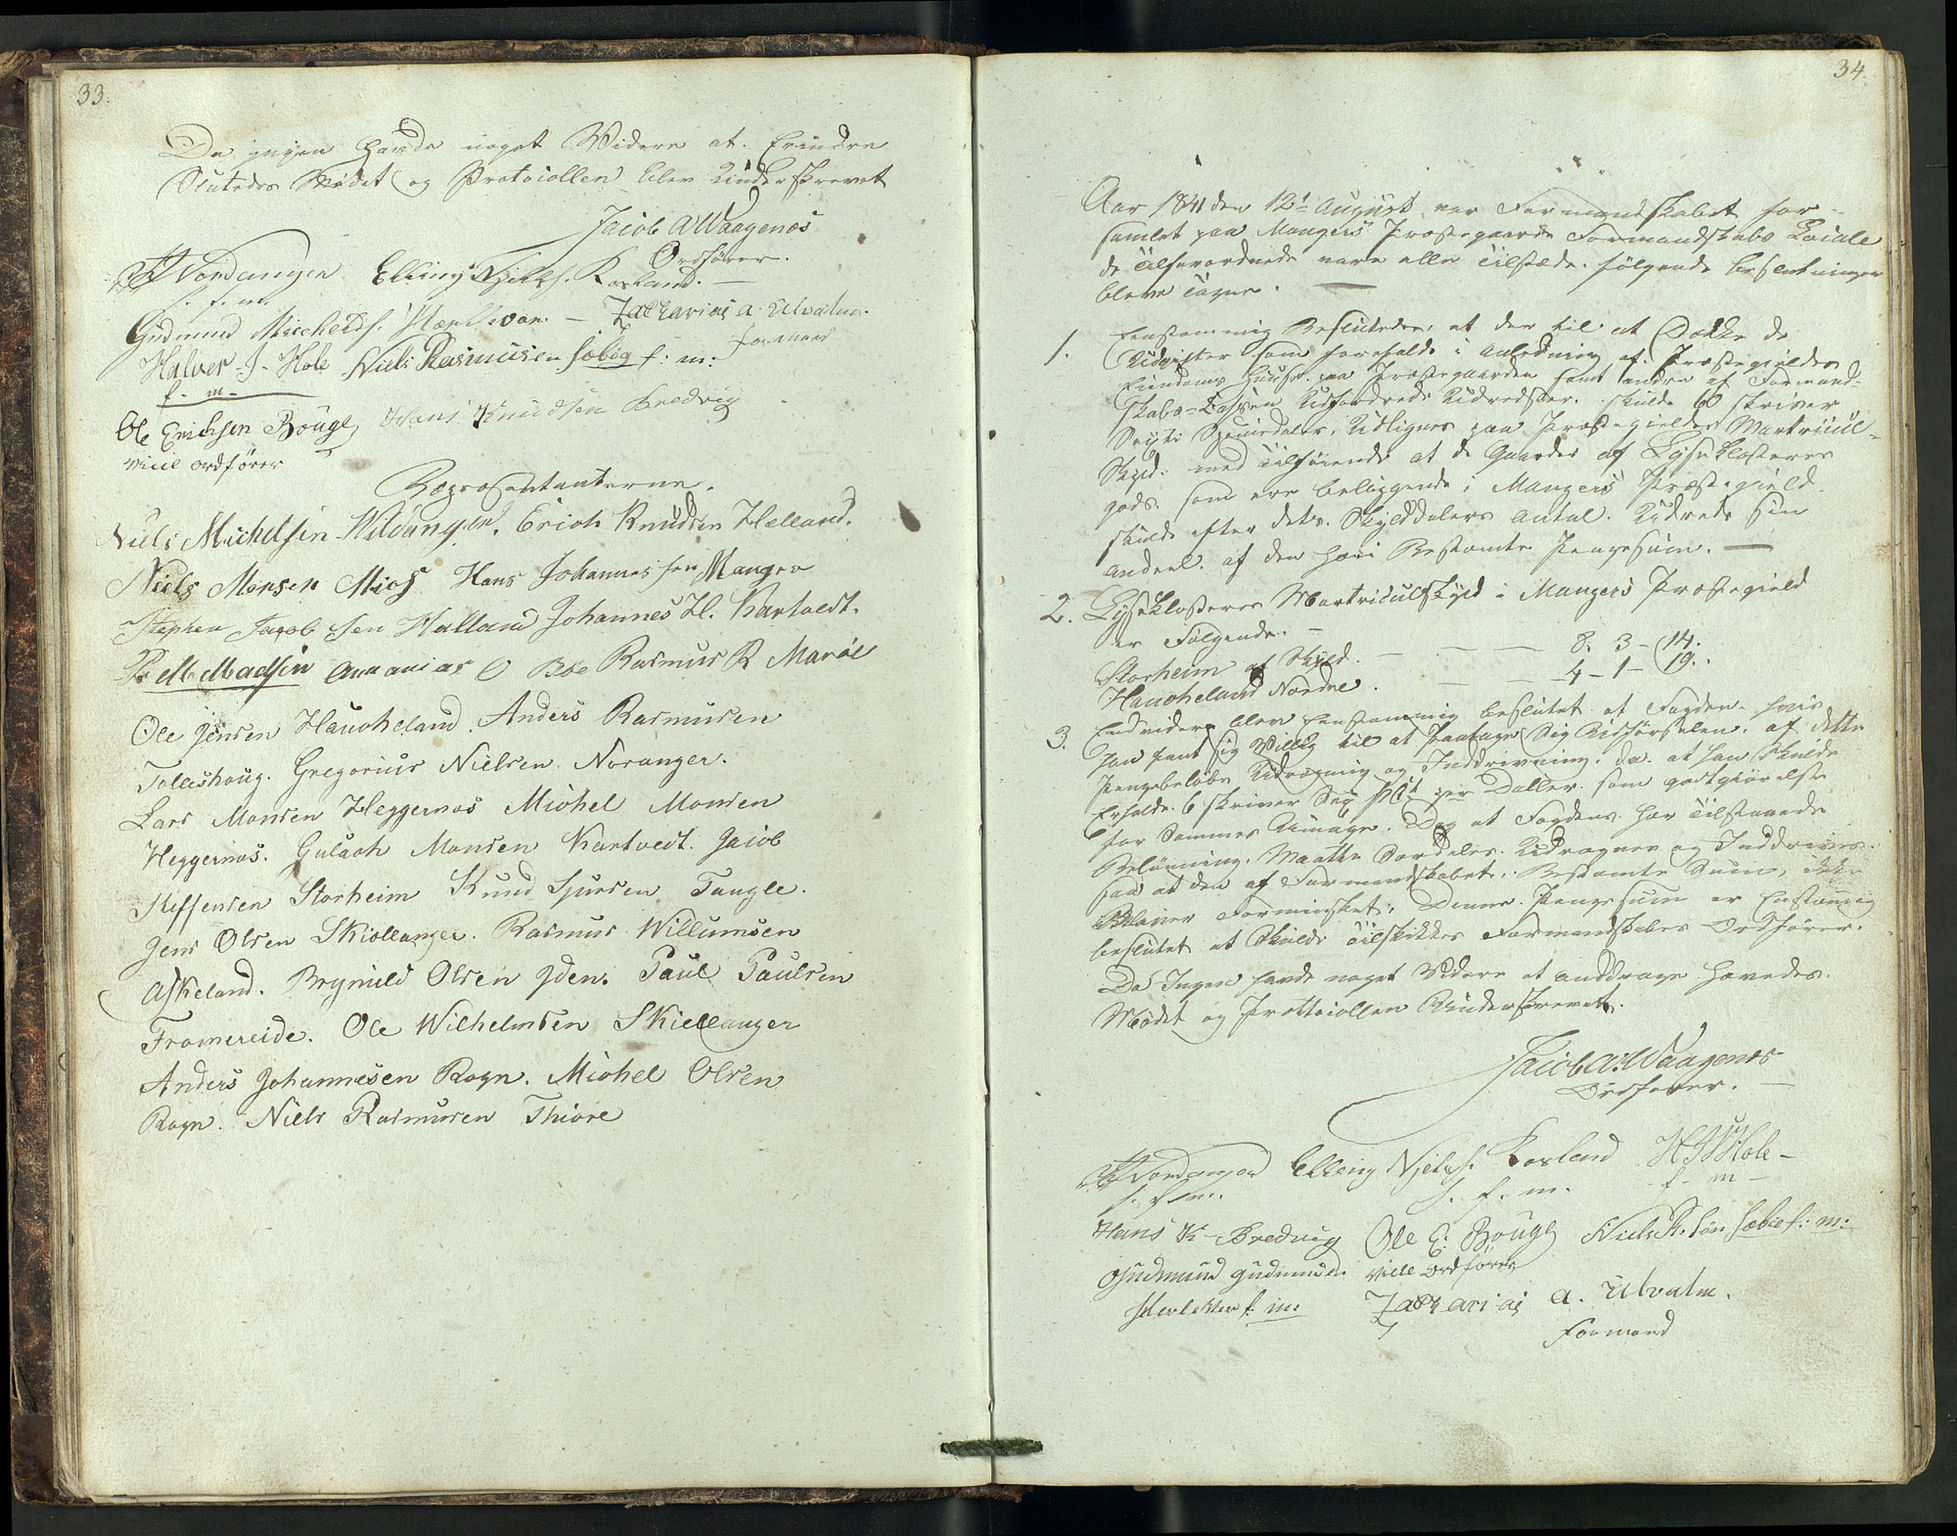 33.
Da ingen havde noget Widere at Erindre
Slutedes Mødet og Protocollen blev Underskrevet
Jacob A Waagenæs
Ordfører.
Elling Njels. Kosland.
f. m.
Gudmund Zacharias A. Ulvatn.
Formand
Halver J. Hole Niels Rasmusen Sæbøg f: m:
f. m.
Ole Erichsen Bøuge Hans Knudsen Bredvig
vice ordfører
Repræsentanterne.
Niels Michelsen Erich Knudsen Helland.
Niels Monsen Mios Hans Johannessen Manger
Stephen Jacobsen Halland Johannes H. Kartvedt.
Madsen Ananias O Bøe Rasmus R Marøe
Ole Jensen Haucheland. Anders Rasmusen
Toleshoug. Gregorius Nielsen Noranger.
Lars Monsen Heggernæs Michel Monsen
Heggernæs. Gulach Monsen Kartvedt. Jacob
Steffensen Storheim Knud Sjursen Tangle.
Jens Olsen Skiellanger. Rasmus Willumsen
Askeland. Brynild Olsen Yden. Paul Paulsen
Fromereide. Ole Wilhelmsen Skiellanger
Anders Johannesen Rogn. Michel Olsen
Rogn. Niels Rasmusen Thiore
34.
Aar 1841 den 12te August var Formandskabet for-
samlet paa Mangers Præstegaards Formandskabs Locale
de Tilforordnede vare alle Tilstæde. følgende beslutninger
bleve Tagne.
1. Eenstemmig Besluttedes, at der til at Dække de
Udgifter som forefaldt i Anledning af Præstegieldets
Eiendoms Huuse paa Præstegaarden samt andre af Formand-
skabs-Cassen Udfordrede Udredster. skulde 60 skriver
Sexti Speciedaler, Udlignes paa Præstegieldets Martricül-
Skyld: med Tilføiende at de Gaarde af Lyseklosters
gods. som ere beliggende i Mangers Præstegield
skulde efter dets Skylddalers Antal. Udrede sin
Andeel af den heri Bestemte Pengesum.
2. Lyseklosters Martriculskyld i Mangers Præstegield
er Følgende.
Storheim af Skyld. 8. 3 - 14.
Haucheland Nordre. 4 - 1 - 19.
3. Endvidere blev Eenstemmig besluttet at Fogden. hvis
han fant sig Villig til at paatage Sig Udførselen af dette
Pengebeløbs Udregning og Inddrivning, da at han Skulde
Erholde 6 skriver Sex Skl per Daller som godtgiørelse
for Sammes Umage. Dog at Fogdens her Tilstaaede
Belønning. Maatte Udregnes og Inddrives.
saa at den af Formandskabet Bestemte Sum, ikke
bliver Forminsket; Denne Pengesum er Enstemmig
besluttet at Skulde tilskikkes Formandskabets Ordfører.
Da Ingen havde noget Videre at anddrage hævedes
Mødet og Prottocollen Underskrevet.
Jacob A: Waagenæs
Ordfører.
Elling Njels. Kosland H J Hole
s. f. m. f. m
Hans K Bredvig Ole E: Bøuge Niels R. søn Sæbøe f: m:
Gudmund Gudmunds. vice Ordfører
f. m: Zacharias A. Ulvatn.
Formand